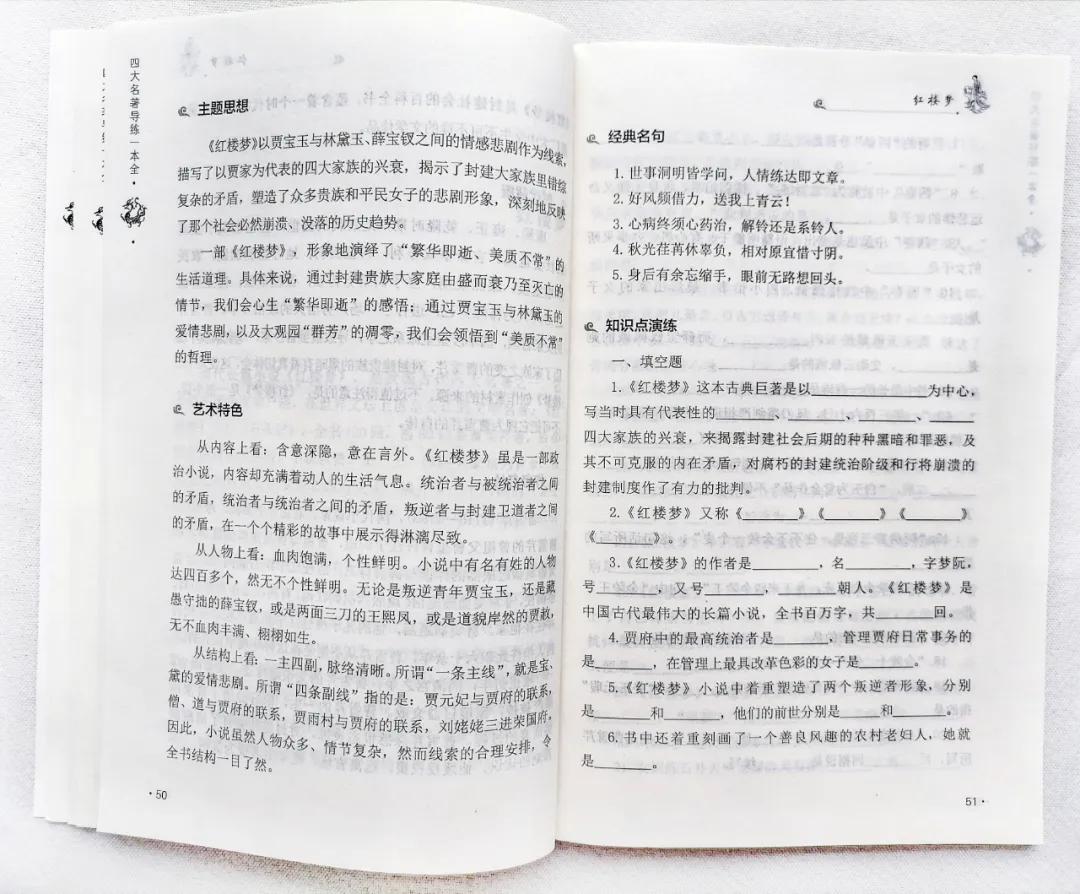 四大名著导练一本全
主题思想
《红楼梦》以贾宝玉与林黛玉、薛宝钗之间的情感悲剧作为线索,
描写了以贾家为代表的四大家族的兴衰，揭示了封建大家族里错综
复杂的矛盾，塑造了众多贵族和平民女子的悲剧形象，深刻地反映
了那个社会必然崩溃、没落的历史趋势。
一部《红楼梦》，形象地演绎了“繁华即逝、美质不常”的
生活道理。具体来说，通过封建贵族大家庭由盛而衰乃至灭亡的
情节，我们会心生“繁华即逝”的感悟；通过贾宝玉与林黛玉的
爱情悲剧，以及大观园“群芳”的凋零，我们会领悟到“美质不常”
的哲理。
艺术特色
从内容上看：含意深隐，意在言外。《红楼梦》虽是一部政
治小说，内容却充满着动人的生活气息。统治者与被统治者之间
的矛盾，统治者与统治者之间的矛盾，叛逆者与封建卫道者之间
的矛盾，在一个个精彩的故事中展示得淋漓尽致。
从人物上看：血肉饱满，个性鲜明。小说中有名有姓的人物
达四百多个，然无不个性鲜明。无论是叛逆青年贾宝玉，还是藏
愚守拙的薛宝钗，或是两面三刀的王熙凤，或是道貌岸然的贾赦，
无不血肉丰满、栩栩如生。
从结构上看：一主四副，脉络清晰。所谓“一条主线”，就是宝、
黛的爱情悲剧。所谓“四条副线”指的是：贾元妃与贾府的联系，
僧、道与贾府的联系，贾雨村与贾府的联系，刘姥姥三进荣国府，
因此，小说虽然人物众多、情节复杂，然而线索的合理安排，令
全书结构一目了然。
·50
红楼梦
经典名句
1. 世事洞明皆学问，人情练达即文章。
2. 好风频借力，送我上青云！
3. 心病终须心药治，解铃还是系铃人。
4. 秋光荏苒休辜负，相对原宜惜寸阴。
5. 身后有余忘缩手，眼前无路想回头。
知识点演练
一、填空题
1.《红楼梦》这本古典巨著是以________为中心，
写当时具有代表性的____、____、____、____
四大家族的兴衰，来揭露封建社会后期的种种黑暗和罪恶，及
其不可克服的内在矛盾，对腐朽的封建统治阶级和行将崩溃的
封建制度作了有力的批判。
2.《红楼梦》又称《____》《____》《____》
《____》。
3.《红楼梦》的作者是____，名____，字梦阮，
号____，又号____，____朝人。《红楼梦》是
中国古代最伟大的长篇小说，全书百万字，共____回。
4. 贾府中的最高统治者是____，管理贾府日常事务的
是____，在管理上最具改革色彩的女子是____。
5.《红楼梦》小说中着重塑造了两个叛逆者形象，分别
是____和____，他们的前世分别是____和____。
6. 书中还着重刻画了一个善良风趣的农村老妇人，她就
是____。
51·